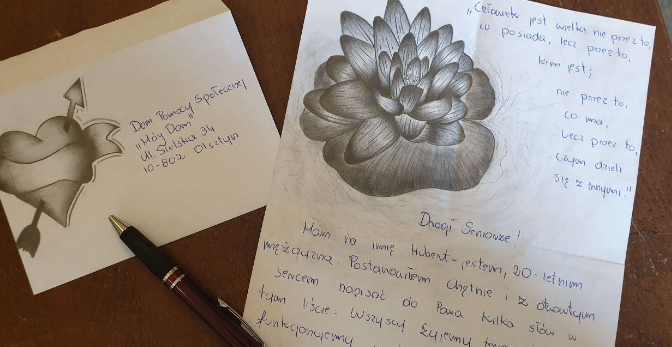 Dom Pomocy Społecznej
"Mój Dom"
Ul. Sielska 34
10-802 Olsztyn
"Człowiek jest wielki nie przez to,
co posiada, lecz przez to,
kim jest;
nie przez to,
co ma,
lecz przez to,
czym dzieli
się z innymi."
Drogi Seniorze!
Mam na imię Hubert - jestem 20-letnim
mężczyzną. Postanowiłem chętnie i z otwartym
sercem napisać do Pana kilka słów w
tym liście. Wszyscy żyjemy
funkcjonujemy